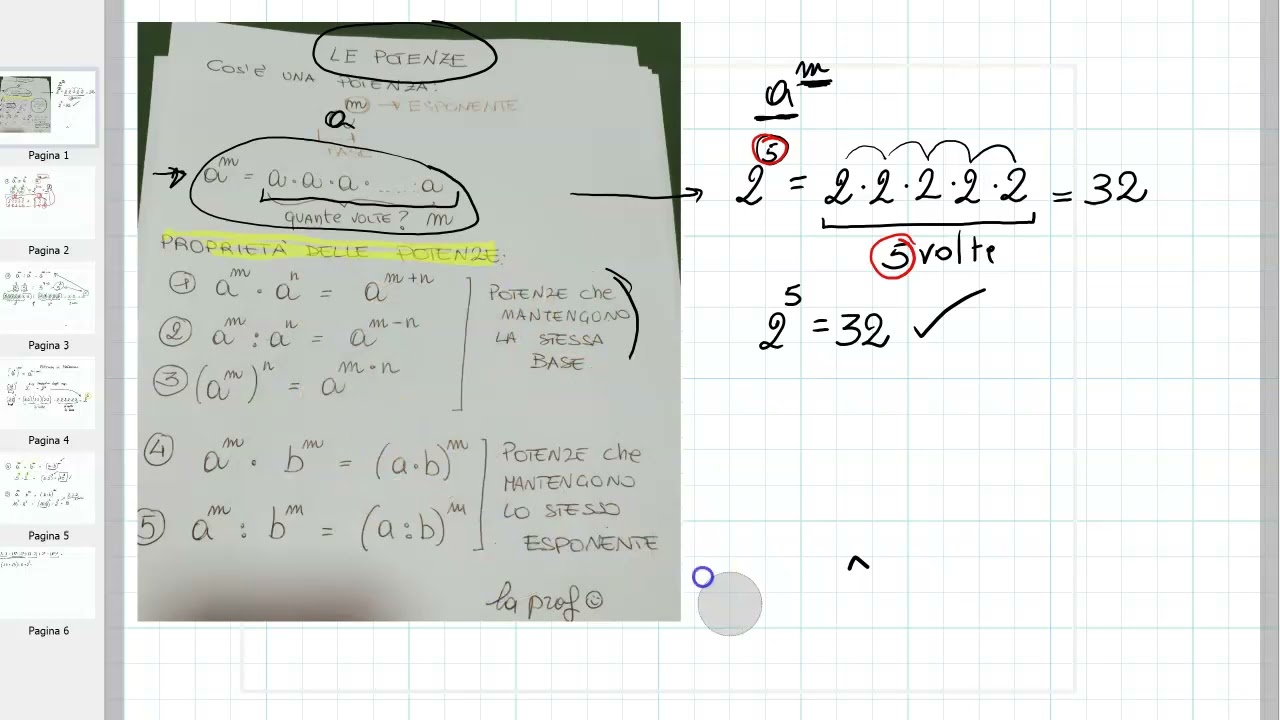 Pagina 1
Pagina 2
Pagina 3
Pagina 4
Pagina 5
Pagina 6
LE POTENZE
COS'È UNA POTENZA:
a m → ESPONENTE
BASE
→ a^m = a·a·a·.....a
quante volte? m
PROPRIETÀ DELLE POTENZE:
① a^m · a^n = a^m+n
② a^m : a^n = a^m-n
③ (a^m)^n = a^m·n
POTENZE che
MANTENGONO
LA STESSA
BASE
④ a^m · b^m = (a·b)^m
⑤ a^m : b^m = (a:b)^m
POTENZE che
MANTENGONO
LO STESSO
ESPONENTE
la prof ☺
a^m
2^5 = 2·2·2·2·2 = 32
5 volte
2^5 = 32 ✓